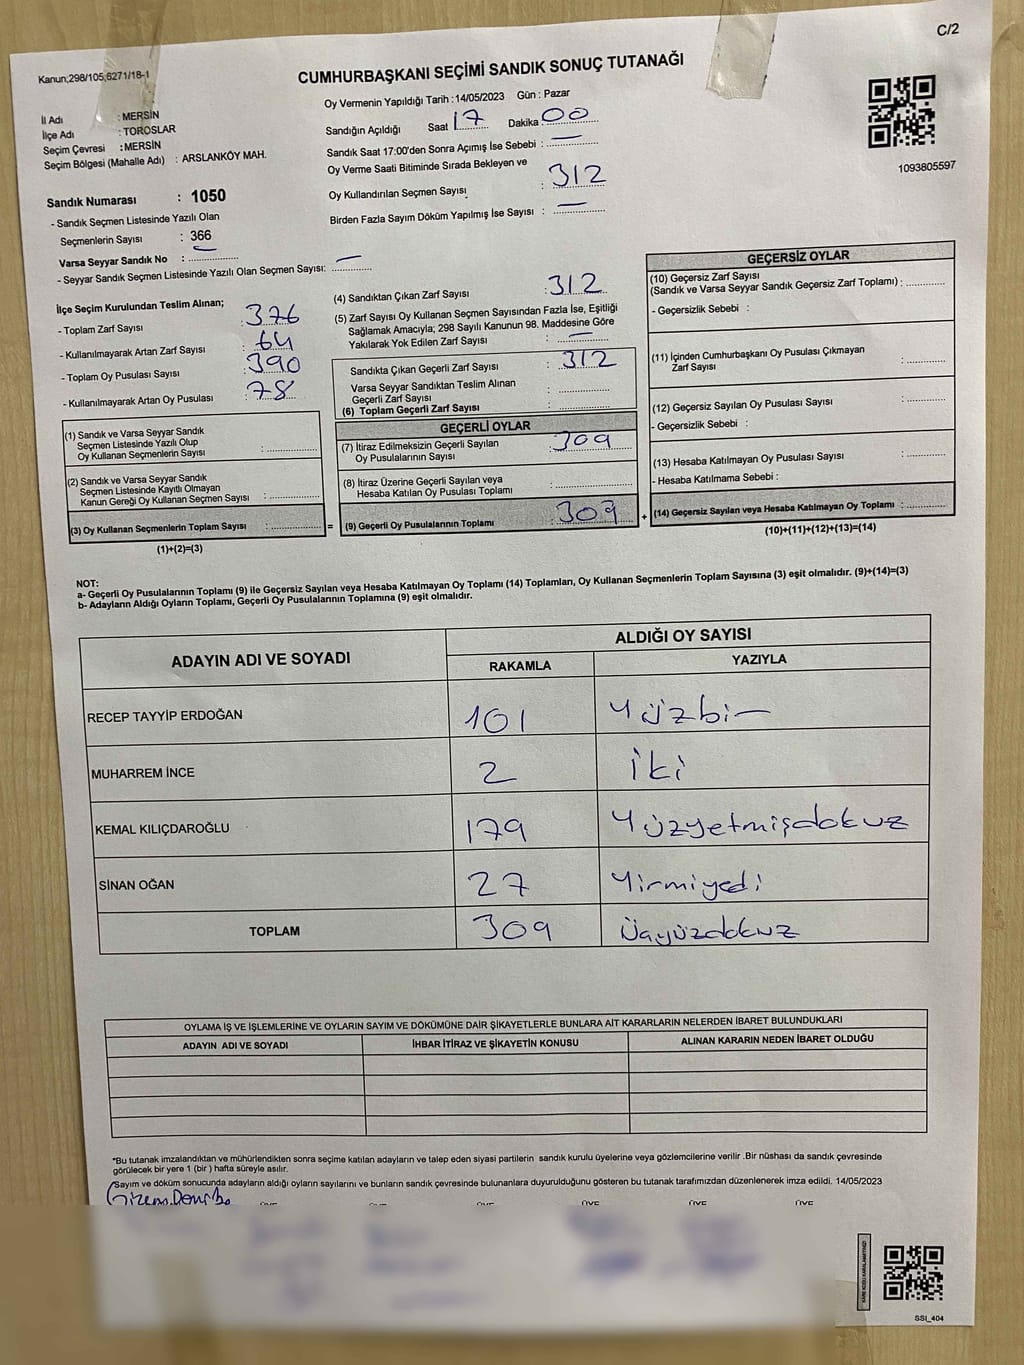 C/2
Kanun;298/105,6271/18-1
CUMHURBAŞKANI SEÇİMİ SANDIK SONUÇ TUTANAĞI
İl Adı : MERSİN
İlçe Adı : TOROSLAR
Seçim Çevresi : MERSİN
Seçim Bölgesi (Mahalle Adı) : ARSLANKÖY MAH.
Sandık Numarası : 1050
- Sandık Seçmen Listesinde Yazılı Olan
Seçmenlerin Sayısı : 366
Varsa Seyyar Sandık No : —
- Seyyar Sandık Seçmen Listesinde Yazılı Olan Seçmen Sayısı: —
Oy Vermenin Yapıldığı Tarih : 14/05/2023 Gün : Pazar
Sandığın Açıldığı Saat 17 Dakika 00
Sandık Saat 17:00'den Sonra Açımış İse Sebebi : —
Oy Verme Saati Bitiminde Sırada Bekleyen ve
Oy Kullandırılan Seçmen Sayısı : 312
Birden Fazla Sayım Döküm Yapılmış İse Sayısı : —
1093805597
İlçe Seçim Kurulundan Teslim Alınan;
- Toplam Zarf Sayısı : 376
- Kullanılmayarak Artan Zarf Sayısı : 64
- Toplam Oy Pusulası Sayısı : 390
- Kullanılmayarak Artan Oy Pusulası : 78
(1) Sandık ve Varsa Seyyar Sandık
Seçmen Listesinde Yazılı Olup
Oy Kullanan Seçmenlerin Sayısı :
(2) Sandık ve Varsa Seyyar Sandık
Seçmen Listesinde Kayıtlı Olmayan
Kanun Gereği Oy Kullanan Seçmen Sayısı :
(3) Oy Kullanan Seçmenlerin Toplam Sayısı :
(1)+(2)=(3)
=
(4) Sandıktan Çıkan Zarf Sayısı : 312
(5) Zarf Sayısı Oy Kullanan Seçmen Sayısından Fazla İse, Eşitliği
Sağlamak Amacıyla; 298 Sayılı Kanunun 98. Maddesine Göre
Yakılarak Yok Edilen Zarf Sayısı : —
Sandıkta Çıkan Geçerli Zarf Sayısı : 312
Varsa Seyyar Sandıktan Teslim Alınan
Geçerli Zarf Sayısı :
(6) Toplam Geçerli Zarf Sayısı :
GEÇERLİ OYLAR
(7) İtiraz Edilmeksizin Geçerli Sayılan
Oy Pusulalarının Sayısı : 309
(8) İtiraz Üzerine Geçerli Sayılan veya
Hesaba Katılan Oy Pusulası Toplamı :
(9) Geçerli Oy Pusulalarının Toplamı : 309
+
GEÇERSİZ OYLAR
(10) Geçersiz Zarf Sayısı
(Sandık ve Varsa Seyyar Sandık Geçersiz Zarf Toplamı) :
- Geçersizlik Sebebi :
(11) İçinden Cumhurbaşkanı Oy Pusulası Çıkmayan
Zarf Sayısı :
(12) Geçersiz Sayılan Oy Pusulası Sayısı :
- Geçersizlik Sebebi :
(13) Hesaba Katılmayan Oy Pusulası Sayısı :
- Hesaba Katılmama Sebebi :
(14) Geçersiz Sayılan veya Hesaba Katılmayan Oy Toplamı :
(10)+(11)+(12)+(13)=(14)
NOT:
a- Geçerli Oy Pusulalarının Toplamı (9) ile Geçersiz Sayılan veya Hesaba Katılmayan Oy Toplamı (14) Toplamları, Oy Kullanan Seçmenlerin Toplam Sayısına (3) eşit olmalıdır. (9)+(14)=(3)
b- Adayların Aldığı Oyların Toplamı, Geçerli Oy Pusulalarının Toplamına (9) eşit olmalıdır.
ADAYIN ADI VE SOYADI ALDIĞI OY SAYISI
RAKAMLA YAZIYLA
RECEP TAYYİP ERDOĞAN 101 Yüzbir
MUHARREM İNCE 2 iki
KEMAL KILIÇDAROĞLU 179 Yüzyetmişdokuz
SİNAN OĞAN 27 Yirmiyedi
TOPLAM 309 Üçyüzdokuz
OYLAMA İŞ VE İŞLEMLERİNE VE OYLARIN SAYIM VE DÖKÜMÜNE DAİR ŞİKAYETLERLE BUNLARA AİT KARARLARIN NELERDEN İBARET BULUNDUKLARI
ADAYIN ADI VE SOYADI İHBAR İTİRAZ VE ŞİKAYETİN KONUSU ALINAN KARARIN NEDEN İBARET OLDUĞU
*Bu tutanak imzalandıktan ve mühürlendikten sonra seçime katılan adayların ve talep eden siyasi partilerin sandık kurulu üyelerine veya gözlemcilerine verilir .Bir nüshası da sandık çevresinde
görülecek bir yere 1 (bir ) hafta süreyle asılır.
Sayım ve döküm sonucunda adayların aldığı oyların sayılarını ve bunların sandık çevresinde bulunanlara duyurulduğunu gösteren bu tutanak tarafımızdan düzenlenerek imza edildi. 14/05/2023
ÜYE ÜYE ÜYE ÜYE ÜYE ÜYE
SSI_404